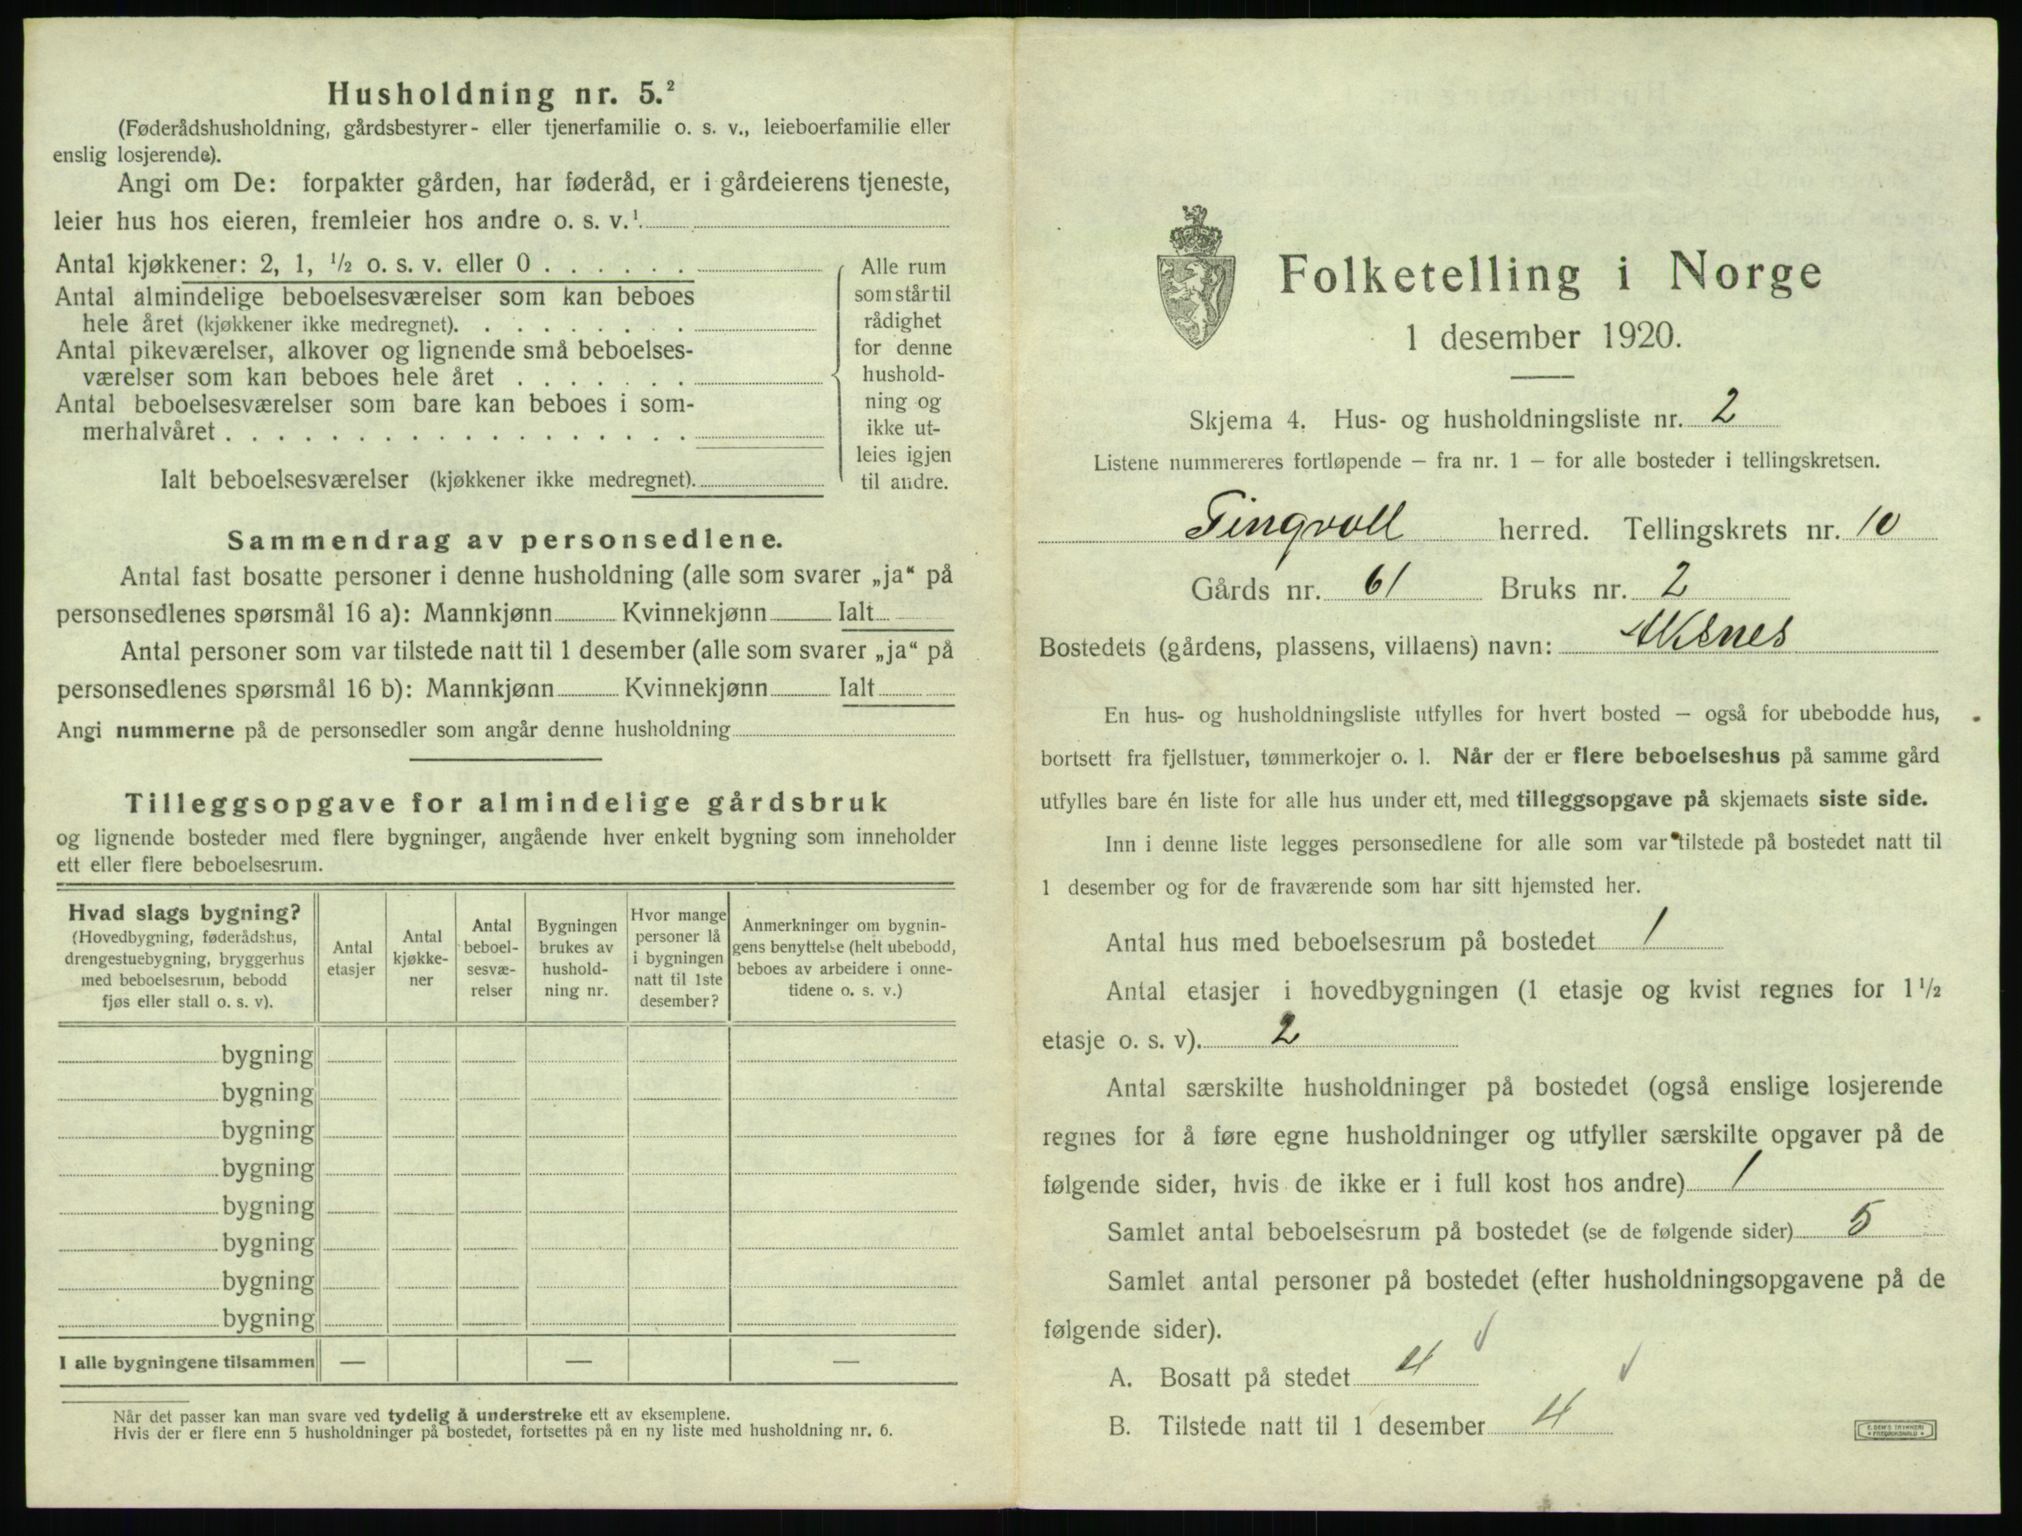 Husholdning nr. 5.²
(Føderådshusholdning, gårdsbestyrer- eller tjenerfamilie o. s. v., leieboerfamilie eller
enslig losjerende).
Angi om De: forpakter gården, har føderåd, er i gårdeierens tjeneste,
leier hus hos eieren, fremleier hos andre o. s. v.¹
Antal kjøkkener: 2, 1, ½ o. s. v. eller 0 . . . . . .
Antal almindelige beboelsesværelser som kan beboes
hele året (kjøkkener ikke medregnet). . . . . . . . .
Antal pikeværelser, alkover og lignende små beboelses-
værelser som kan beboes hele året . . . . . . .
Antal beboelsesværelser som bare kan beboes i som-
merhalvåret . . . . . . . . . . . . . . . . . .
Ialt beboelsesværelser (kjøkkener ikke medregnet).
Alle rum
som står til
rådighet
for denne
hushold-
ning og
ikke ut-
leies igjen
til andre.
Sammendrag av personsedlene.
Antal fast bosatte personer i denne husholdning (alle som svarer „ja“ på
personsedlenes spørsmål 16 a): Mannkjønn Kvinnekjønn Ialt
Antal personer som var tilstede natt til 1 desember (alle som svarer „ja“ på
personsedlenes spørsmål 16 b): Mannkjønn Kvinnekjønn Ialt
Angi nummerne på de personsedler som angår denne husholdning
Tilleggsopgave for almindelige gårdsbruk
og lignende bosteder med flere bygninger, angående hver enkelt bygning som inneholder
ett eller flere beboelsesrum.
Hvad slags bygning?
(Hovedbygning, føderådshus,
drengestuebygning, bryggerhus
med beboelsesrum, bebodd
fjøs eller stall o. s. v).
Antal
etasjer
Antal
kjøkke-
ner
Antal
beboel-
sesvæ-
relser
Bygningen
brukes av
hushold-
ning nr.
Hvor mange
personer lå
i bygningen
natt til 1ste
desember?
Anmerkninger om bygnin-
gens benyttelse (helt ubebodd,
beboes av arbeidere i onne-
tidene o. s. v.)
bygning
bygning
bygning
bygning
bygning
bygning
bygning
bygning
I alle bygningene tilsammen — — —
Når det passer kan man svare ved tydelig å understreke ett av eksemplene.
Hvis der er flere enn 5 husholdninger på bostedet, fortsettes på en ny liste med husholdning nr. 6.
Folketelling i Norge
1 desember 1920.
Skjema 4. Hus- og husholdningsliste nr. 2
Listene nummereres fortløpende – fra nr. 1 – for alle bosteder i tellingskretsen.
Tingvoll herred. Tellingskrets nr. 10
Gårds nr. 61 Bruks nr. 2
Bostedets (gårdens, plassens, villaens) navn: Aksnes
En hus- og husholdningsliste utfylles for hvert bosted – også for ubebodde hus,
bortsett fra fjellstuer, tømmerkojer o. l. Når der er flere beboelseshus på samme gård
utfylles bare én liste for alle hus under ett, med tilleggsopgave på skjemaets siste side.
Inn i denne liste legges personsedlene for alle som var tilstede på bostedet natt til
1 desember og for de fraværende som har sitt hjemsted her.
Antal hus med beboelsesrum på bostedet 1
Antal etasjer i hovedbygningen (1 etasje og kvist regnes for 1½
etasje o. s. v). 2
Antal særskilte husholdninger på bostedet (også enslige losjerende
regnes for å føre egne husholdninger og utfyller særskilte opgaver på de
følgende sider, hvis de ikke er i full kost hos andre) 1
Samlet antal beboelsesrum på bostedet (se de følgende sider) 5
Samlet antal personer på bostedet (efter husholdningsopgavene på de
følgende sider).
A. Bosatt på stedet 4
B. Tilstede natt til 1 desember 4